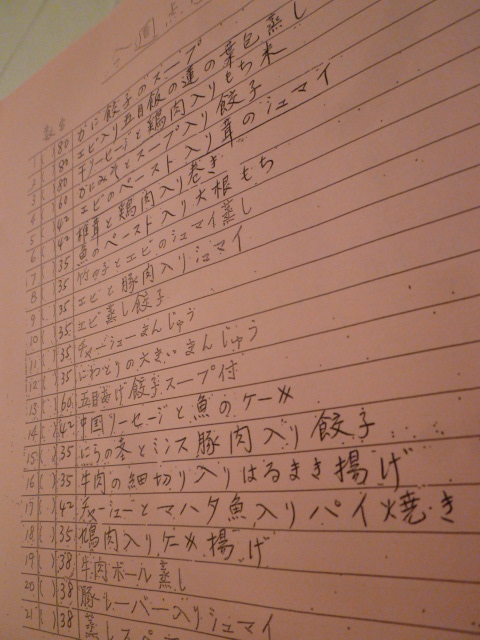 数字
1 ( ) 80 かに餃子のスープ
2 ( ) 80 エビ入り五目飯の蓮の葉包蒸し
3 ( ) 80 チソーセージと鶏肉入りもち米
4 ( ) 60 かにみそとスープ入り餃子
5 ( ) 42 エビのペースト入り茸のシュマイ
6 ( ) 42 椎茸と鶏肉入り巻き
7 ( ) 35 魚のペースト入り大根もち
8 ( ) 35 竹の子とエビのシュマイ蒸し
9 ( ) 35 エビと豚肉入りシュマイ
10 ( ) 35 エビ蒸し餃子
11 ( ) 35 チャーシューまんじゅう
12 ( ) 35 にわとりの大きいまんじゅう
13 ( ) 60 五目あげ餃子スープ付
14 ( ) 42 中国ソーセージと魚のケーキ
15 ( ) 35 にらの巻とミンス豚肉入り餃子
16 ( ) 35 牛肉の細切り入りはるまき揚げ
17 ( ) 42 チャーシューとマハタ魚入りパイ焼き
18 ( ) 35 鴨肉入りケーキ揚げ
19 ( ) 38 牛肉ボール蒸し
20 ( ) 38 豚レーバー入りシュマイ
21 ( ) 38 蒸しスペ